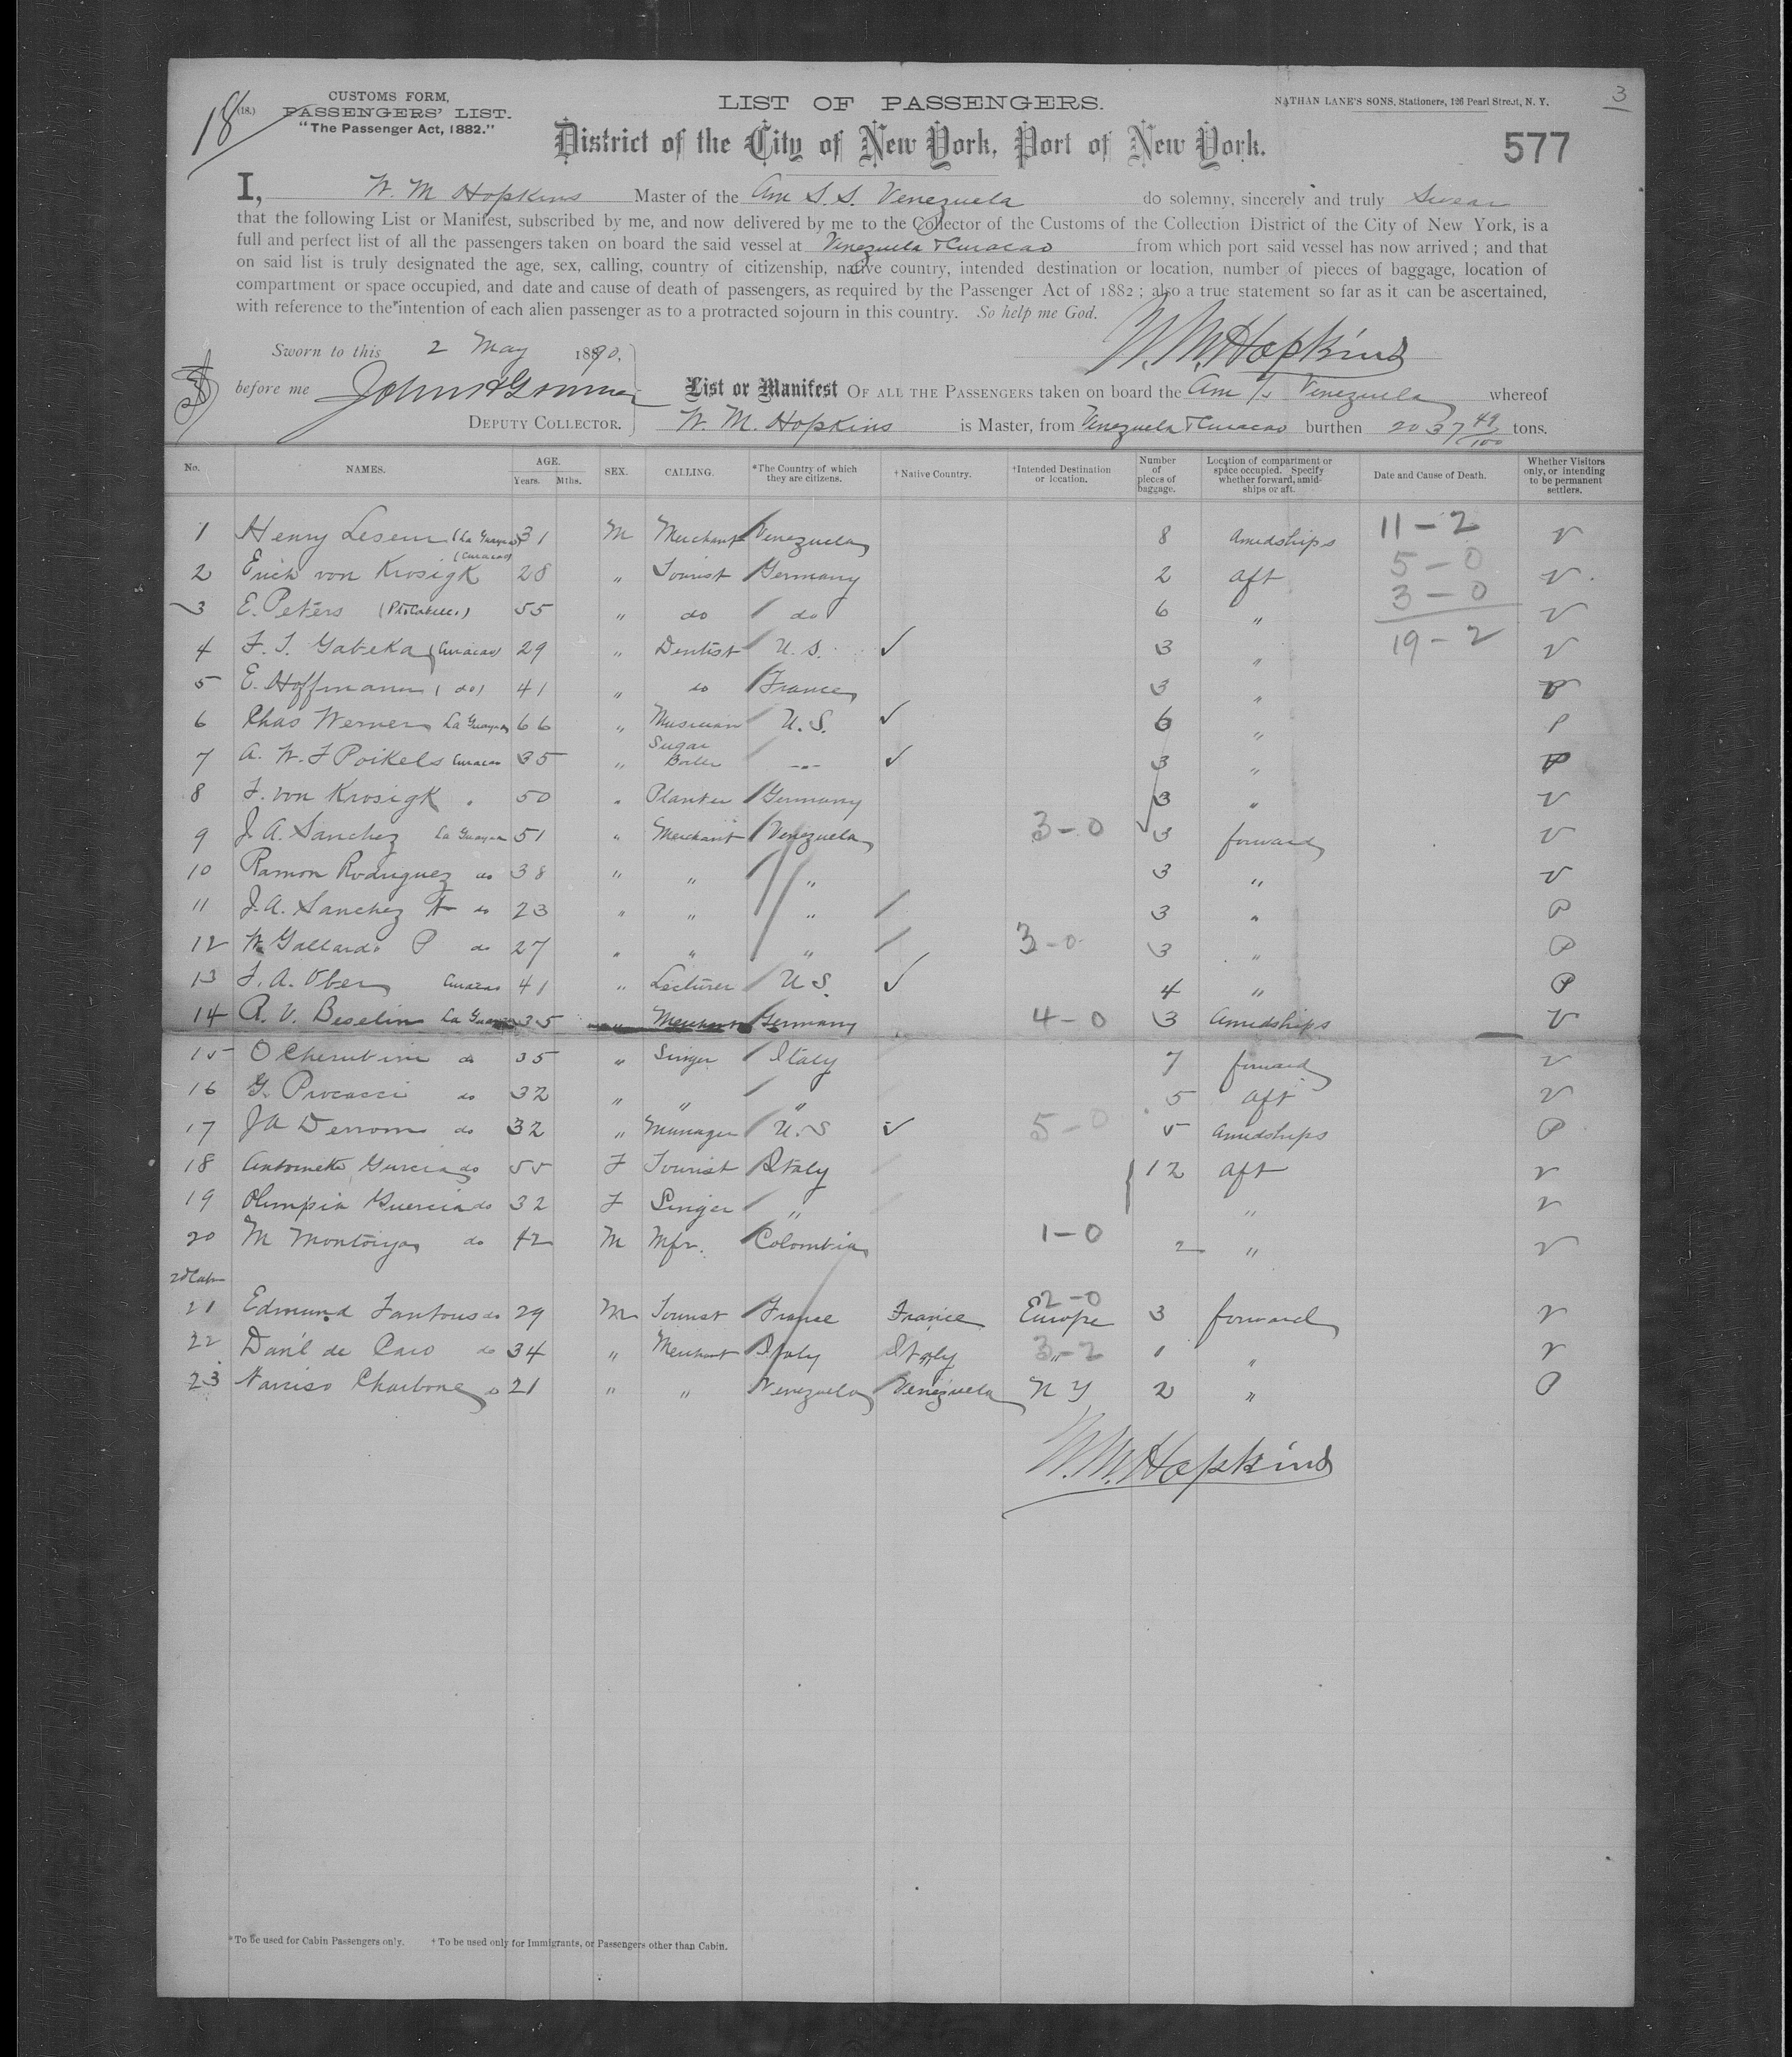 3
18 (18.)
CUSTOMS FORM,
PASSENGERS' LIST.
"The Passenger Act, 1882."
LIST OF PASSENGERS.
NATHAN LANE'S SONS, Stationers, 126 Pearl Street, N. Y.
District of the City of New York, Port of New York.
577
I, W. M Hopkins Master of the Am S.S. Venezuela do solemny, sincerely and truly Swear
that the following List or Manifest, subscribed by me, and now delivered by me to the Collector of the Customs of the Collection District of the City of New York, is a
full and perfect list of all the passengers taken on board the said vessel at Venezuela & Curacao from which port said vessel has now arrived ; and that
on said list is truly designated the age, sex, calling, country of citizenship, native country, intended destination or location, number of pieces of baggage, location of
compartment or space occupied, and date and cause of death of passengers, as required by the Passenger Act of 1882 ; also a true statement so far as it can be ascertained,
with reference to the intention of each alien passenger as to a protracted sojourn in this country. So help me God.
W. M. Hopkins
Sworn to this 2 May 1890,
before me John
DEPUTY COLLECTOR.
List or Manifest OF ALL THE PASSENGERS taken on board the Am Venezuela whereof
W. M. Hopkins is Master, from Venezuela & Curacao burthen 2037 49/100 tons.
No. NAMES. AGE. Years. Mths. SEX. CALLING. *The Country of which they are citizens. †Native Country. †Intended Destination or location. Number of pieces of baggage. Location of compartment or space occupied. Specify whether forward, amidships or aft. Date and Cause of Death. Whether Visitors only, or intending to be permanent settlers.
1 Henry Leseur (La Guayra) 31 M Merchant Venezuela 8 Amidships 11-2 V
2 Erich von Krosigk (Curacao) 28 " Tourist Germany 2 aft 5-0 V
3 E. Peters (Pto Cabello) 55 " do do 6 " 3-0 V
4 (Curacao) 29 " Dentist U.S. ✓ 3 " 19-2 V
5 E. Hoffmann (do) 41 " do France 3 "
6 Chas Werner La Guayra 66 " Musician U.S. ✓ 6 " P
7 A. W. F Poikels Curacao 35 " Sugar Boiler -"- ✓ 3 " P
8 F. von Krosigk " 50 " Planter Germany 3 " V
9 J. A. Sanchez La Guayra 51 " Merchant Venezuela 3-0 3 forward V
10 Ramon Rodriguez do 38 " " " 3 " V
11 J. A. Sanchez do 23 " " " 3 " P
12 Gallardo P do 27 " " " 3-0 3 " P
13 F. A. Ober Curacao 41 " Lecturer U S. ✓ 4 " P
14 R. V. Beselin La Guayra 35 " Merchant Germany 4-0 3 Amidships V
15 O Cherubini do 35 " Singer Italy 7 forward V
16 G. Procacci do 32 " " " 5 aft V
17 J A Derrom do 32 " Manager U.S ✓ 5-0 5 Amidships P
18 Antoinetta Guercia do 55 F Tourist Italy 12 aft V
19 Olimpia Guercia do 32 F Singer " " V
20 M Montoya do 42 M Mfr. Colombia 1-0 2 " V
2d Cabin
21 Edmund Fantous do 29 M Tourist France France 2-0 Europe 3 forward V
22 Danil de Caro do 34 " Merchant Italy Italy 3-2 " 1 " V
23 Narciso Charbone do 21 " " Venezuela Venezuela N Y 2 " P
W. M. Hopkins
*To be used for Cabin Passengers only. †To be used only for Immigrants, or Passengers other than Cabin.